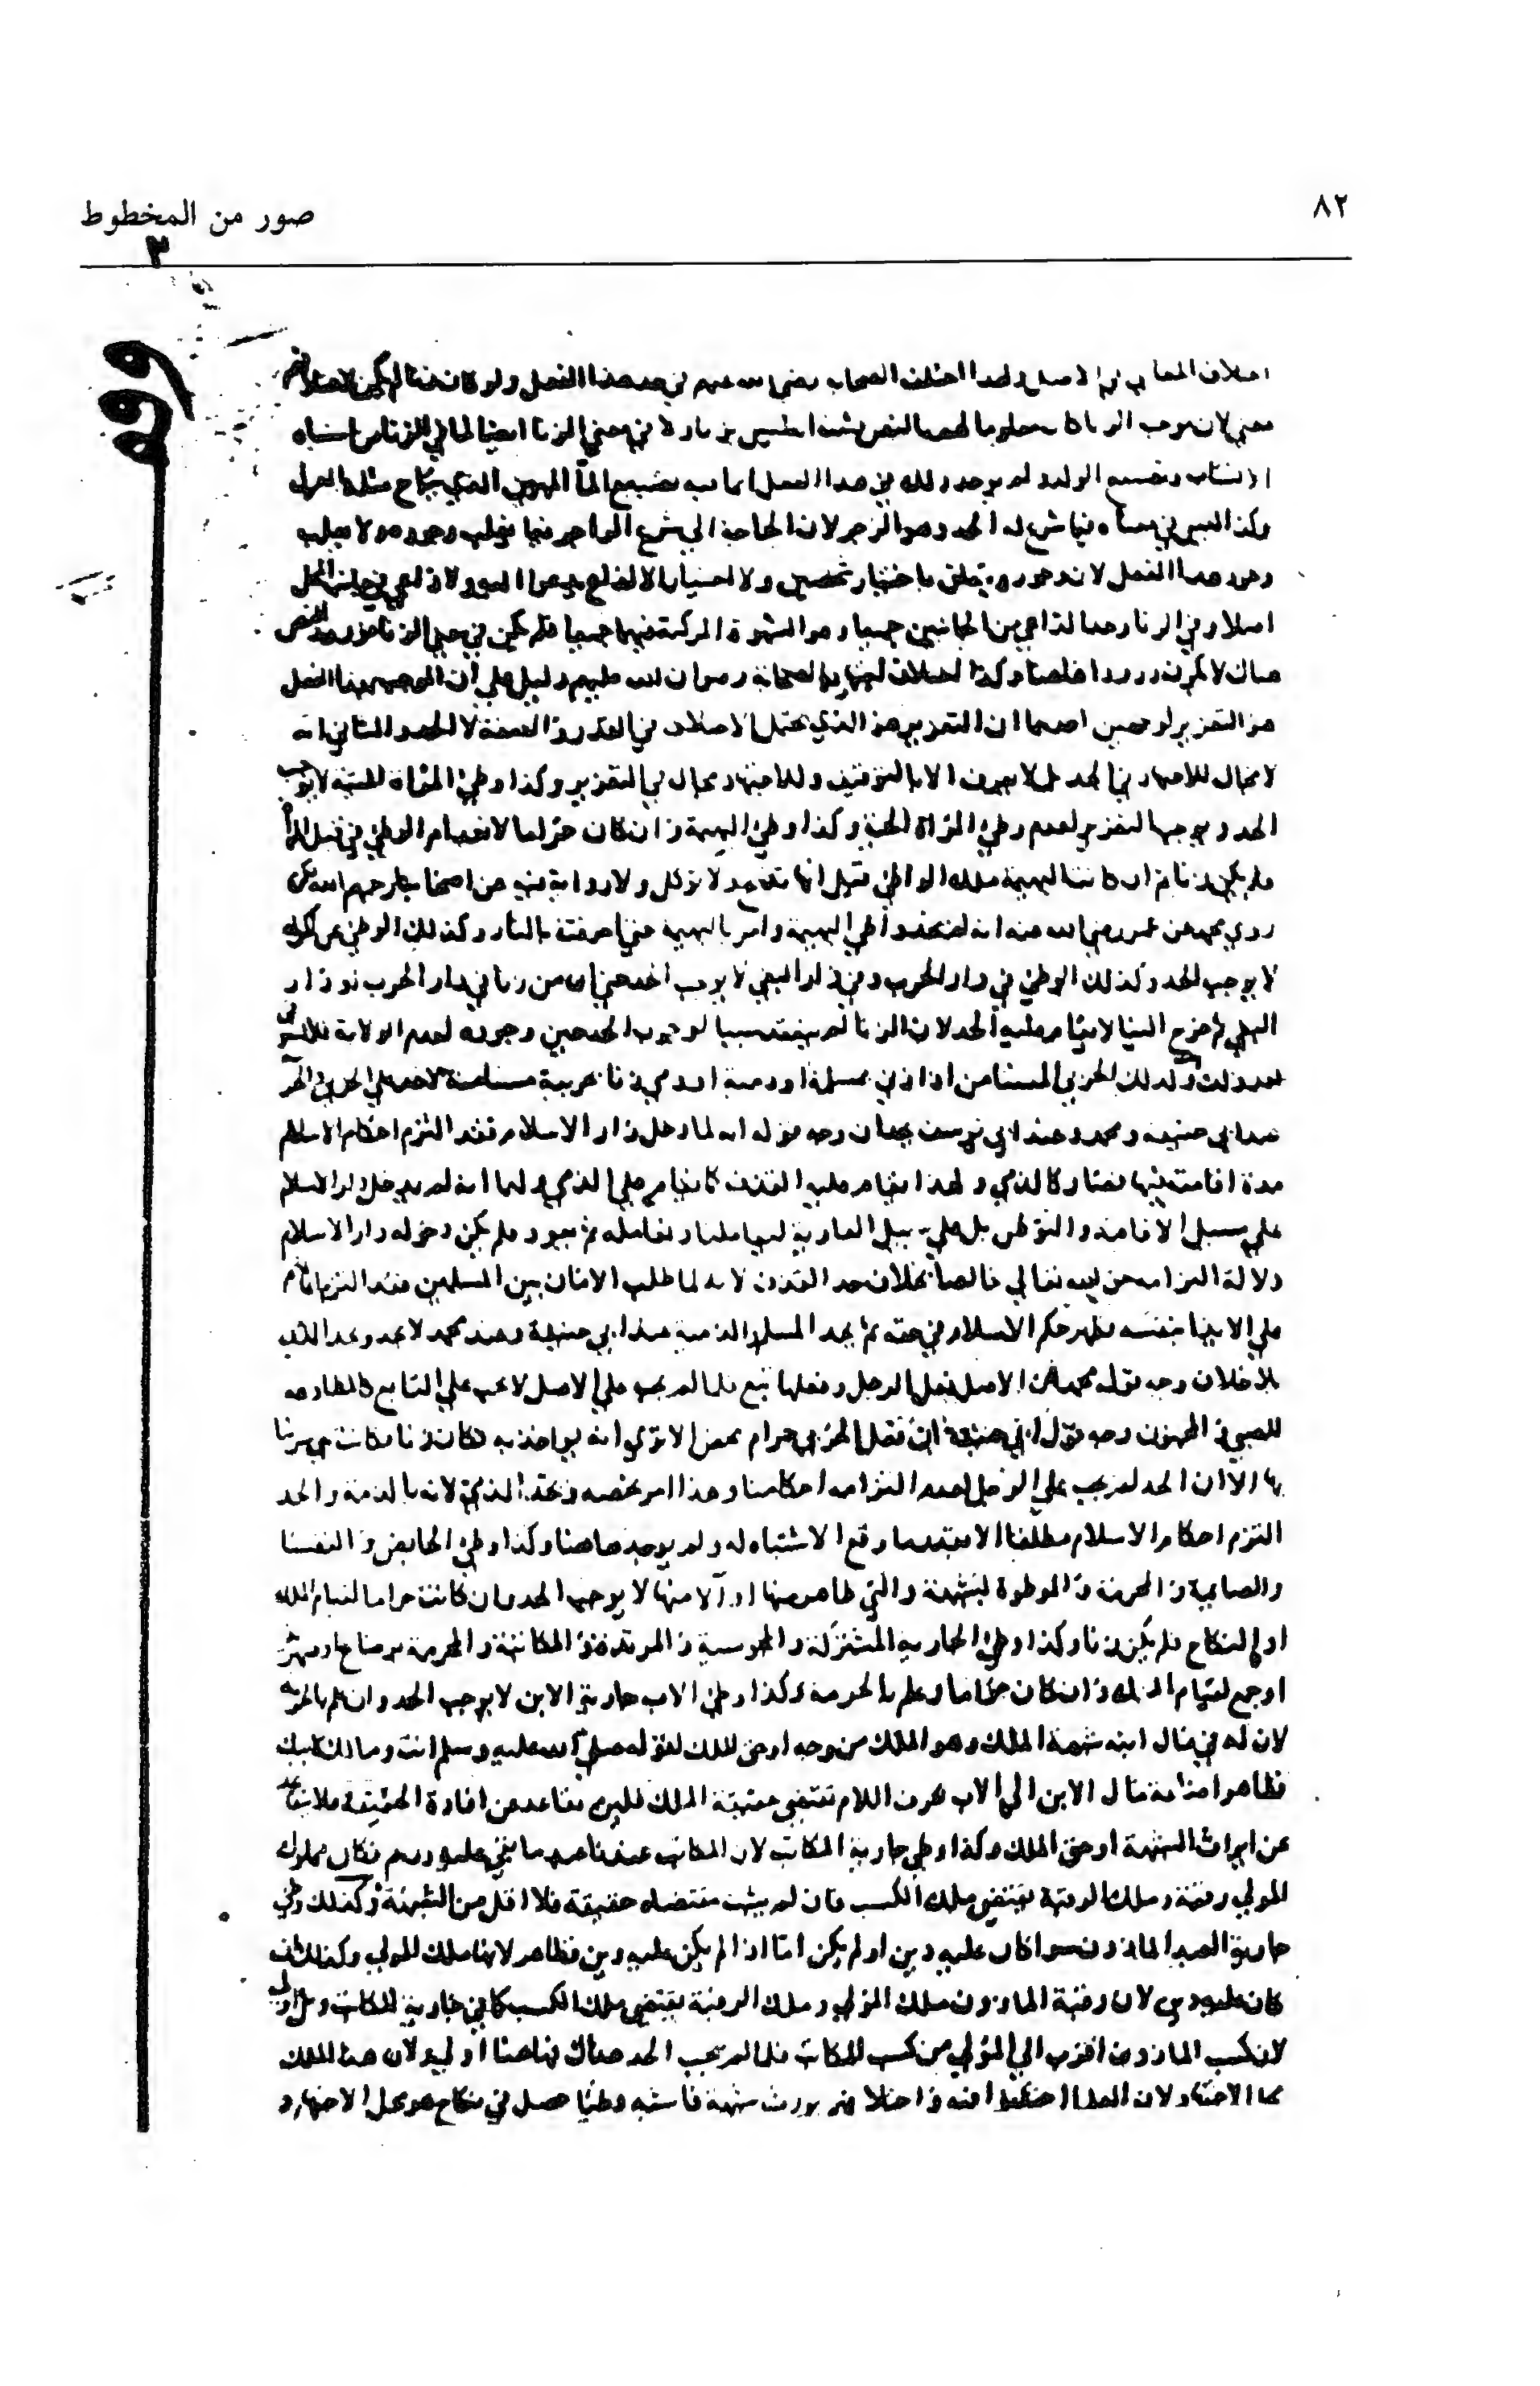 ٨٢
صور من المخطوط
٣
وقف
اختلاف المعاني في الاصل ولهذا اختلف الصحابة رضي الله عنهم في حد هذا الفعل ولو كان هذا لم يكن لاختلافهم
معنى لان موجب الزنا كان معلوما لهم بالنص فثبت انه ليس بزنا ولا في معنى الزنا ايضا لما في الزنا من اشتباه
الانساب وتضييع الولد ولم يوجد ذلك في هذا الفعل انما فيه تضييع الماء المهين الذي يباح مثله بالعزل
وكذا ليس في معناه فيما شرع له الحد وهو الزجر لان الحاجة الى شرع الزاجر فيما يغلب وجوده ولا يغلب
وجود هذا الفعل لان وجوده يتعلق باختيار شخصين ولا اختيار الا لداع يدعو اليه ولا داعي في جانب المحل
اصلا وفي الزنا وجد الداعي من الجانبين جميعا وهو الشهوة المركبة فيهما جميعا فلم يكن في معنى الزنا فورود النص
هناك لا يكون ورودا هاهنا وكذا اختلاف اجتهاد الصحابة رضوان الله عليهم دليل على ان الموجب بهذا الفعل
هو التعزير لوجهين احدهما ان التعزير هو الذي يحتمل الاختلاف في القدر والصفة لا الحد والثاني انه
لا مجال للاجتهاد في الحد بل لا يعرف الا بالتوقيف وللاجتهاد مجال في التعزير وكذا وطئ المراة الميتة لا يوجب
الحد ويوجب التعزير لعدم وطئ المراة الحية وكذا وطئ البهيمة وان كان حراما لانعدام الوطئ في قبل المراة
فلم يكن زنا ثم ان كانت البهيمة ملك الواطئ قيل انها تذبح ولا تؤكل ولا رواية فيه عن اصحابنا رحمهم الله لكن
روى محمد عن عمر رضي الله عنه انه لم يحد واطئ البهيمة وامر بالبهيمة حتى احرقت بالنار وكذلك الوطئ عن اكراه
لا يوجب الحد وكذلك الوطئ في دار الحرب وفي دار البغي لا يوجب الحد حتى ان من زنا في دار الحرب او دار
البغي ثم خرج الينا لا يقام عليه الحد لان الزنا لم ينعقد سببا لوجوب الحد حين وجوده لعدم الولاية فلا يستوفى
بعد ذلك وكذلك الحربي المستامن اذا زنى بمسلمة او ذمية او ذمي زنا بحربية مستامنة لا حد على الحربي والحربية
عند ابي حنيفة ومحمد وعند ابي يوسف يحدان وجه قوله انه لما دخل دار الاسلام فقد التزم احكام الاسلام
مدة اقامته فيها فصار كالذمي ولهذا يقام عليه حد القذف كما يقام على الذمي ولهما انه لم يدخل دار الاسلام
على سبيل الاقامة والتوطن بل على سبيل العارية ليعاملنا ونعامله ثم يعود فلم يكن دخوله دار الاسلام
دلالة التزامه حق الله تعالى خالصا بخلاف حد القذف لانه لما طلب الامان من المسلمين فقد التزم امانهم
على الايذا بنفسه فظهر حكم الاسلام في حقه ثم يحد المسلم والذمية عند ابي حنيفة وعند محمد لا يحد وعند الذمي
بلا خلاف وجه قول محمد ان الاصل فعل الرجل وفعلها تبع فلما لم يجب على الاصل لا يجب على التابع كالمطاوعة
للصبي والمجنون وجه قول ابي حنيفة ان فعل الحربي حرام محض الا ترى انه يواخذ به فكان زنا فكانت هي مزنيا
بها الا ان الحد لم يجب على الرجل لعدم التزامه احكامنا وهذا امر يخصه ويحد الذمي لانه بالذمة والعهد
التزم احكام الاسلام مطلقا الا بقدر ما وقع الاشتباه له ولم يوجد هاهنا وكذا وطئ الحائض والنفسا
والصائمة والمحرمة والموطوة بشبهة والتي ظاهر منها او آلا منها لا يوجب الحد وان كانت حراما لقيام الملك
او النكاح فلم يكن زنا وكذا وطئ الجارية المشتركة والمجوسية والمرتدة والمكاتبة والمحرمة برضاع او صهر
او جمع لقيام الملك وان كان حراما وعلم بالحرمة وكذا وطئ الاب جارية الابن لا يوجب الحد وان علم بالحرمة
لان له في مال ابنه شبهة الملك وهو الملك من وجه او حق الملك لقوله صلى الله عليه وسلم انت ومالك لابيك
فظاهر اضافة مال الابن الى الاب بحرف اللام يقتضي حقيقة الملك فلئن تقاعد عن افادة الحقيقة فلا يتقاعد
عن ايراث الشبهة او حق الملك وكذا وطئ جارية المكاتب لان المكاتب عندنا عبد ما بقي عليه درهم فكان مملوك
المولى رقبة وملك الرقبة يقتضي ملك الكسب فان لم يثبت مقتضاه حقيقة فلا اقل من الشبهة وكذلك وطئ
جارية العبد الماذون سوا كان عليه دين او لم يكن اما اذا لم يكن عليه دين فظاهر لانها ملك المولى وكذلك ان
كان عليه دين لان رقبة الماذون ملك المولى وملك الرقبة يقتضي ملك الكسب كما في جارية المكاتب وبل اولى
لان كسب الماذون اقرب الى المولى من كسب المكاتب فلما لم يجب الحد هناك فهاهنا اولى ولان هذا الملك
محل الاجتهاد لان العلما اختلفوا فيه واختلافهم يورث شبهة فاشبه وطئا حصل في نكاح هو محل الاجتهاد و